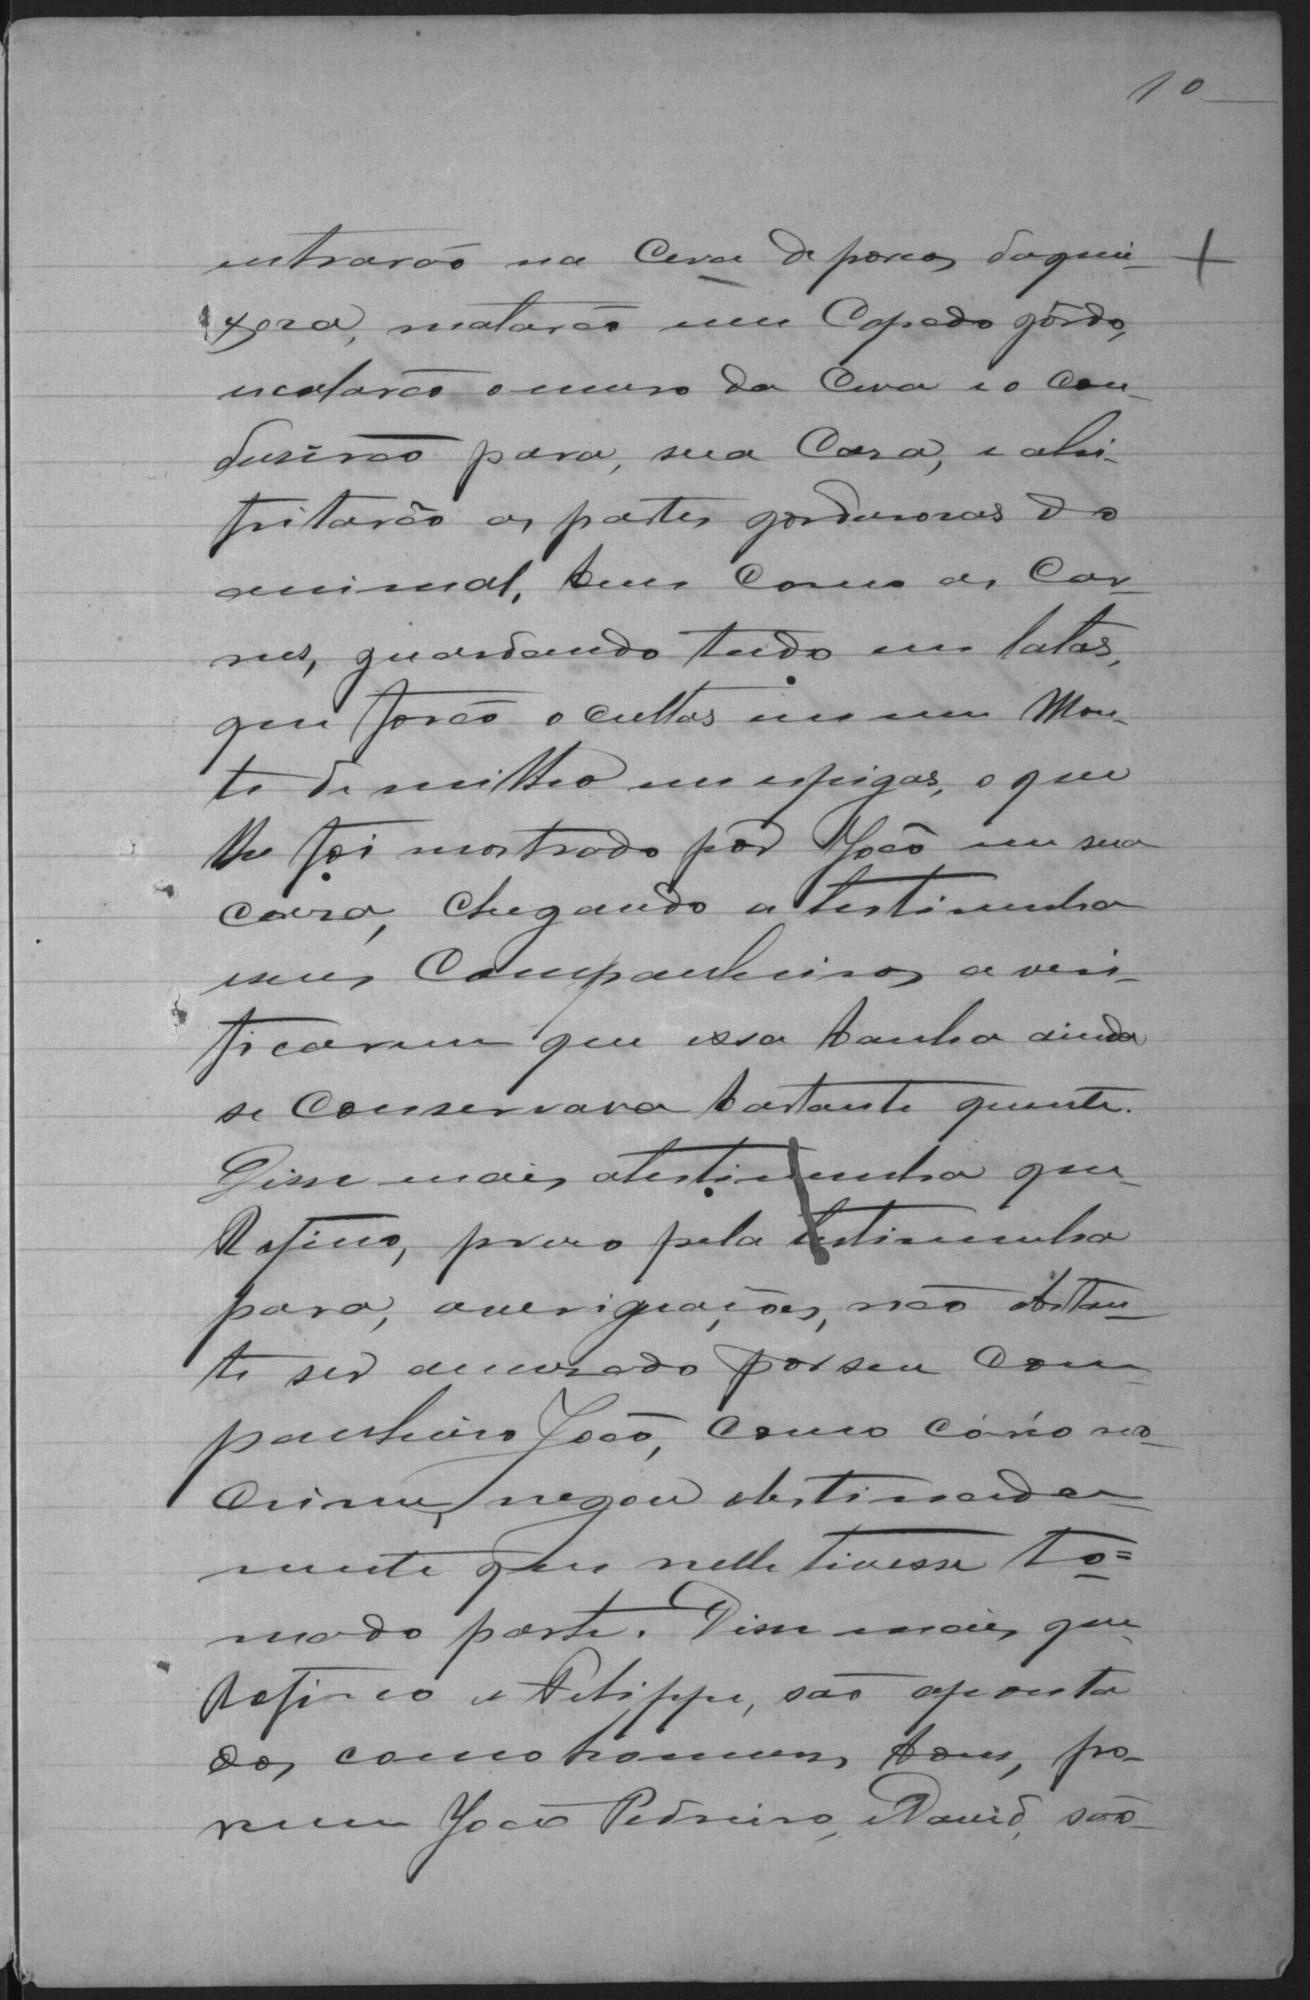 10
entrarão na Ceva de porcos daquei-
xoza, matarão um Capado gôrdo,
escalarão o muro da Ceva e o con-
dusirão para, sua Casa, e ahi
fritarão as partes gordurosas do
animal, bem como as Car-
nes, guardando tudo em latas,
que forão ocultas em um Mon-
te de milho em espigas, o que
lhe foi mostrado por João em sua
casa, Chegando a testimunha
e seus Companheiros a veri-
ficarem que essa banha ainda
se Conservava bastante quente.
Disse mais a testimunha que
Rofino, prezo pela testimunha
para, averiguações, não obstan-
te ser accusado por seu Com-
panheiro João, como có-réo no
Crime, negou obstinada-
mente que nelle tivesse to=
mado parte. Disse mais, que
Rofino e Felippe, são aponta
dos como homens bons, po-
rem João Pedreiro, e David, são